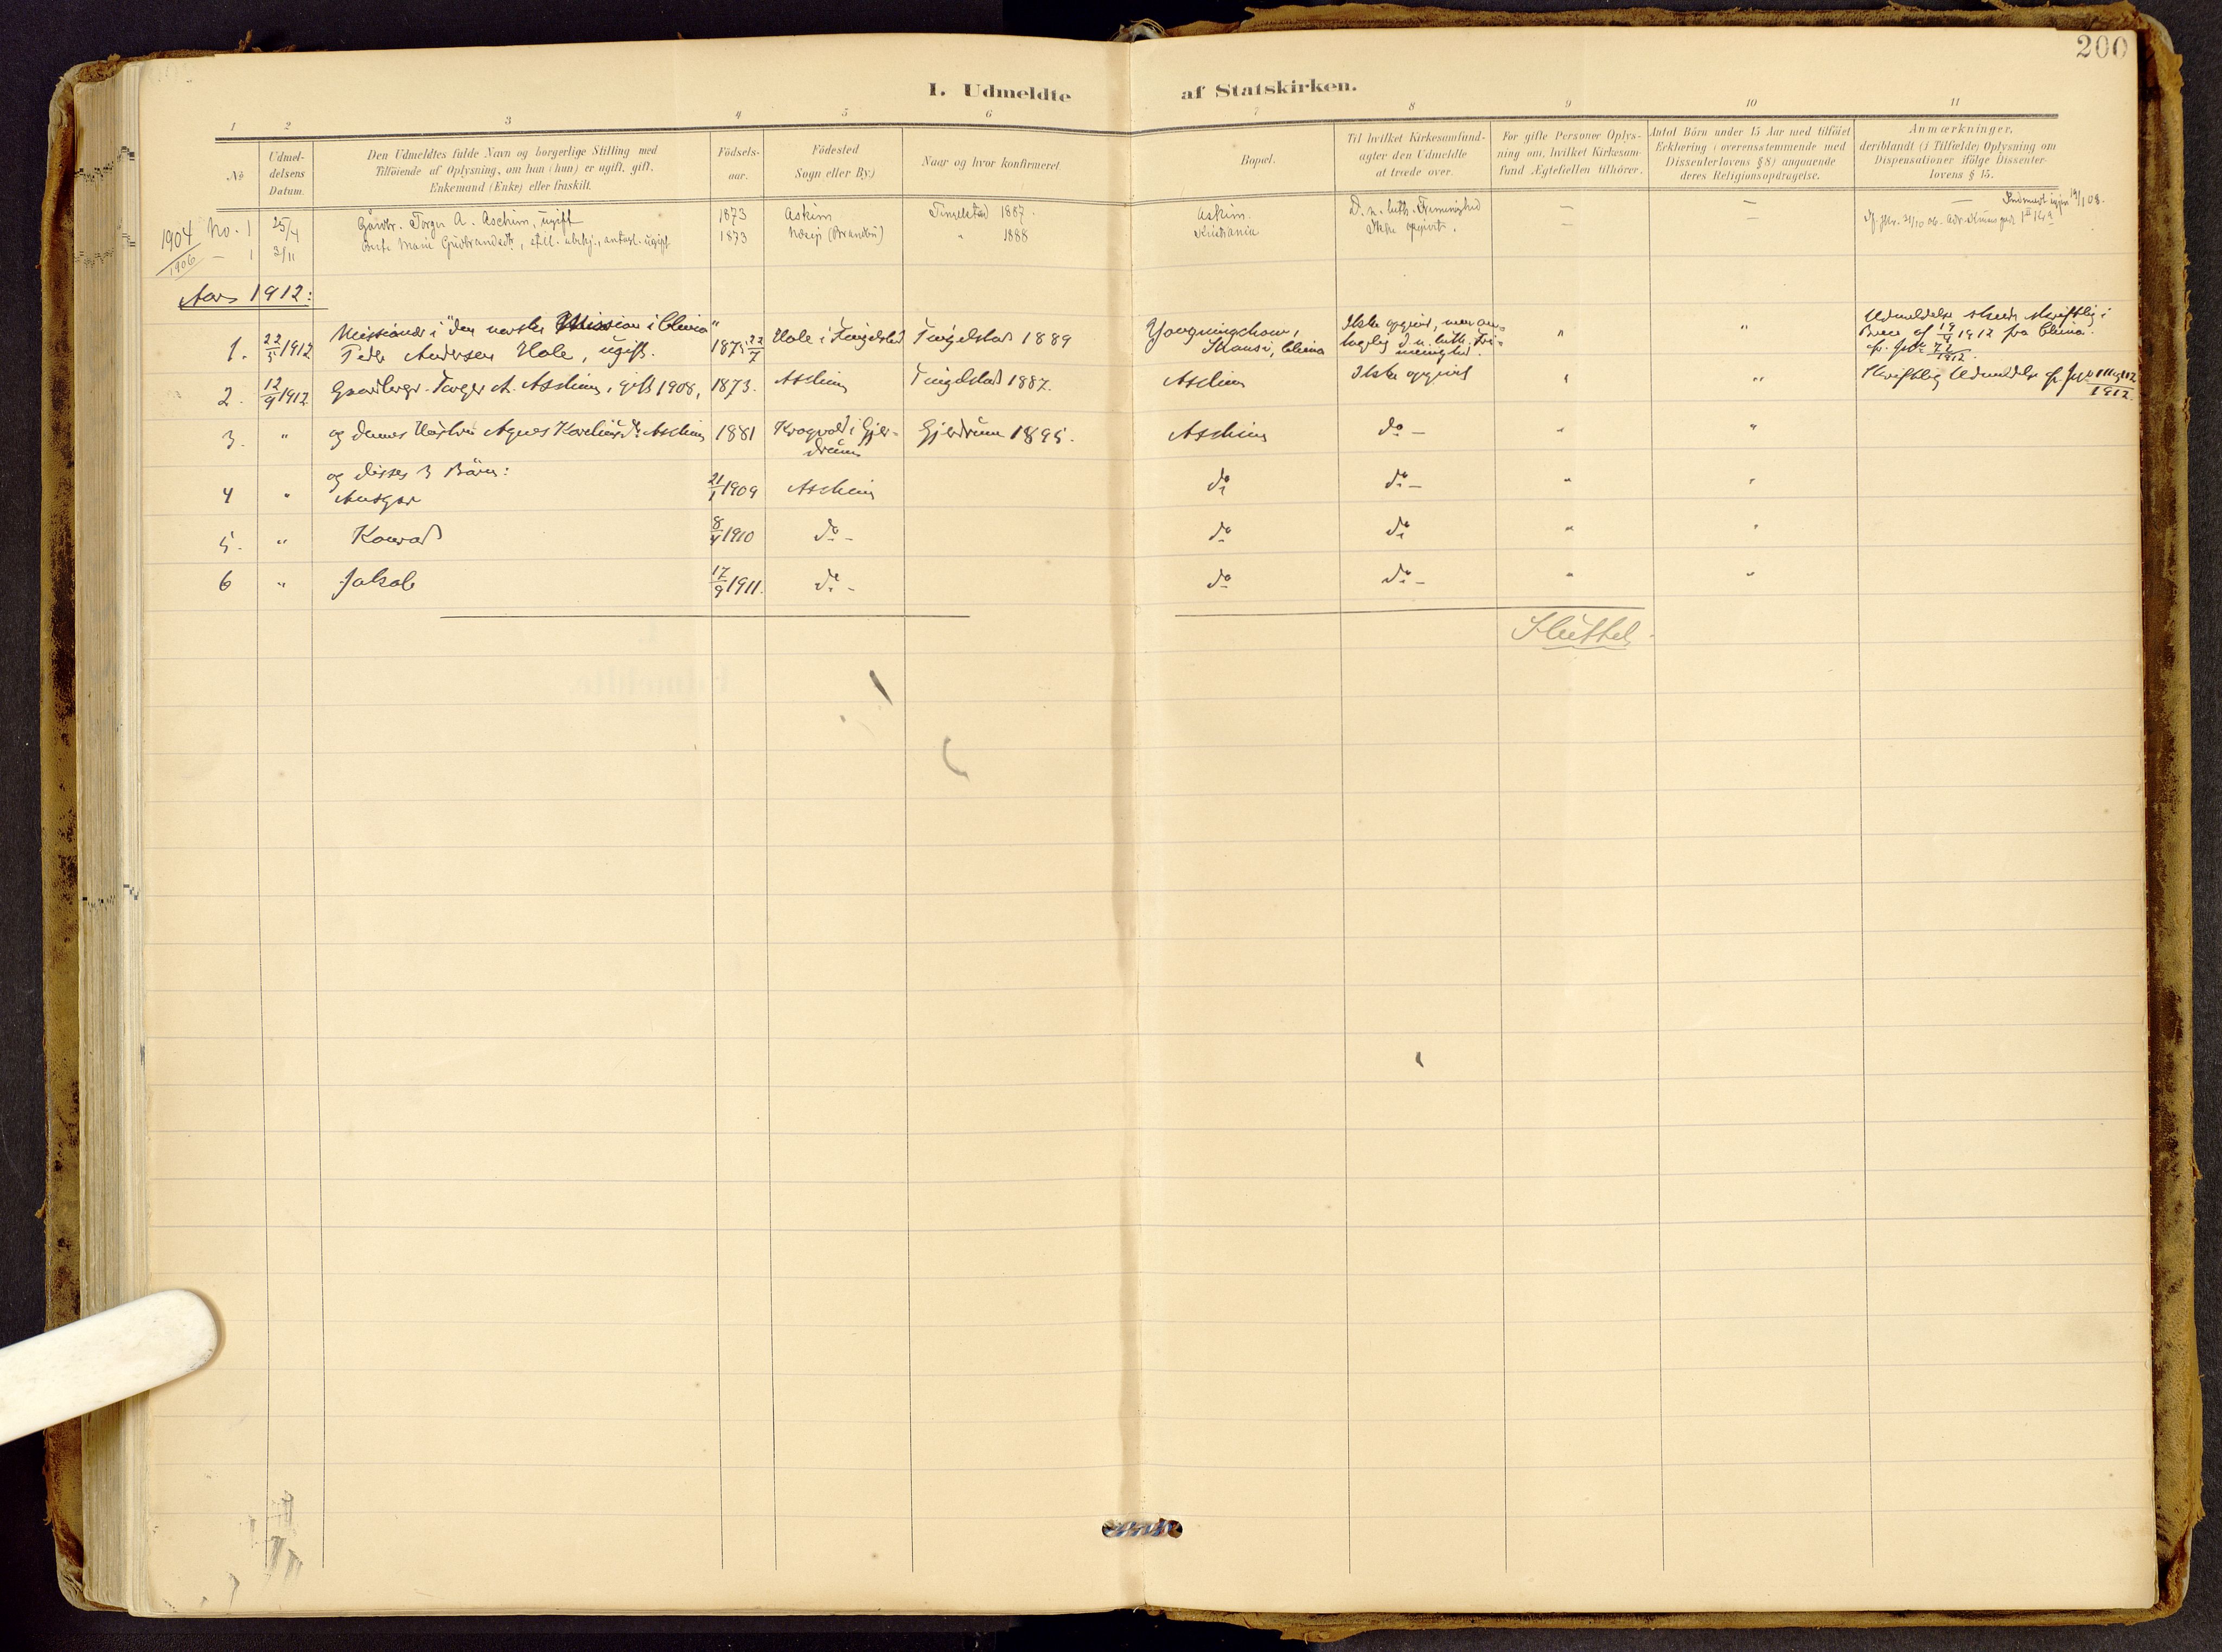 200
I. Udmeldte af Statskirken.
1 2 3 4 5 6 7 8 9 10 11
No
Udmel-
delsens
Datum.
Den Udmeldtes fulde Navn og borgerlige Stilling med
Tilföiende af Oplysning, om han (hun) er ugift, gift,
Enkemand (Enke) eller fraskilt.
Födsels-
aar.
Födested
Sogn eller By.)
Naar og hvor konfirmeret.
Bopæl.
Til hvilket Kirkesamfund
agter den Udmeldte
at træde over.
For gifte Personer Oplys-
ning om, hvilket Kirkesam-
fund Ægtefællen tilhörer.
Antal Börn under 15 Aar med tilföiet
Erklæring i overensstemmende med
Dissenterlovens § 8) angaaende
deres Religionsopdragelse.
Anmærkninger,
deriblandt (i Tilfælde) Oplysning om
Dispensationer ifölge Dissenter-
lovens § 15.
1904 No. 1 25/4 Gårdbr. Torger A. Aschim, ugift 1873 Askim Tingelstad 1887. Askim. D. n. luth. Frimenighed — — — Indmeldt igjen 19/1 08.
1906 — 1 3/11 Marie Gudbrandsdtr, ugift 1873 (Brandbu) " 1888 Kristiania Ikke opgivet. — —
Aar 1912:
Missionær i "den norske Mission i China"
1. 22/5 1912 Peder Andersen Hole, ugift. 1875 22/7 Hole i Tingelstad Tingelstad 1889 China Ikke opgivet, men an-
tagelig d. n. luth. Fri-
menighed. " " Udmeldelse skriftlig i
Brev af 19/4 1912 fra China.
2. 12/9 1912 Torger A. Aschim, gift 1908, 1873. Aschim Tingelstad 1887. Aschim Ikke opgivet " " Skriftlig Udmeldelse
1912.
3. " og dennes Hustru Agnes Aschim 1881 Krogvold i Gjer-
drum Gjerdrum 1895. Aschim do — " "
og disses 3 Börn:
4 " Ansgar 21/1 1909 Aschim do do — " "
5. " Konrad 8/4 1910 do — do do " "
6 " Jakob 17/9 1911. do — do do — " "
Sluttet.